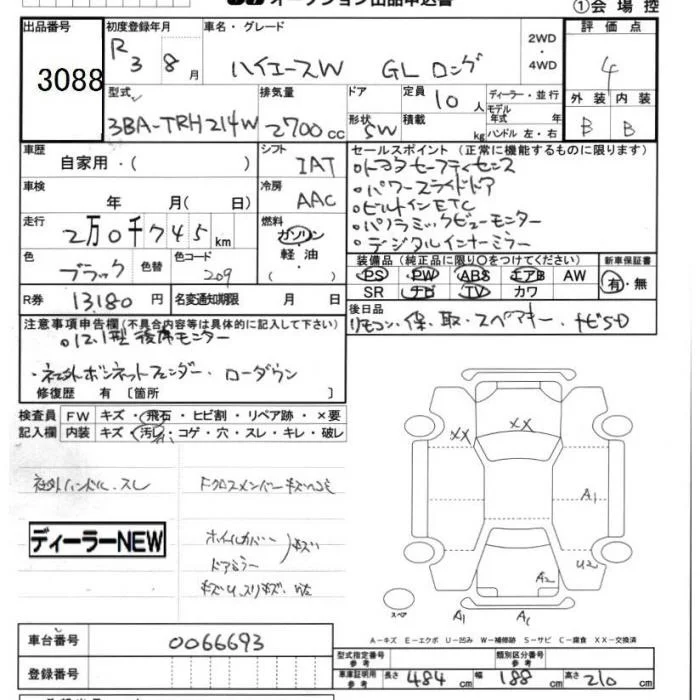 オークション出品申込書
①会場控
出品番号 3088
初度登録年月 R 3 8月
車名・グレード ハイエースW GL ロング
2WD・4WD
評価点 4
型式 3BA-TRH214W
排気量 2700cc
ドア形状 5W
定員 10人
積載 kg
ディーラー・並行
モデル年式 年式
ハンドル 左・右
外装 B 内装 B
車歴 自家用・( )
シフト IAT
車検 年 月( 日)
冷房 AAC
走行 2万0千745km
燃料 ガソリン・軽油・( )
色 ブラック 色替
色コード 209
R券 13,180円
名変通知期限 月 日
セールスポイント(正常に機能するものに限ります)
・トヨタセーフティセンス
・パワースライドドア
・ビルトインETC
・パノラミックビューモニター
・デジタルインナーミラー
装備品(純正品に限り○をつけてください)
PS PW ABS エアB AW
SR ナビ TV カワ
新車保証書 有・無
後日品
リモコン・保・取・スペアキー・ナビSD
注意事項申告欄(不具合内容等は具体的に記入して下さい)
・12.1型後席モニター
・社外ボンネットフェンダー、ローダウン
修復歴 有〔箇所 〕
検査員記入欄
FW キズ・飛石・ヒビ割・リペア跡・×要
内装 キズ・汚れ・コゲ・穴・スレ・キレ・破レ
社外ハンドル、スレ
Fクロスメンバーキズ
ディーラーNEW
ホイルカバー
ドアミラー
キズ
XX XX
A1
U2
A2
A1
スペア
A-キズ E-エクボ U-凹み W-補修跡 S-サビ C-腐食 XX-交換済
車台番号 0066693
登録番号
型式指定番号 参考
類別区分番号 参考
車庫証明用 参考 長さ 484cm 幅 188cm 高さ 210cm